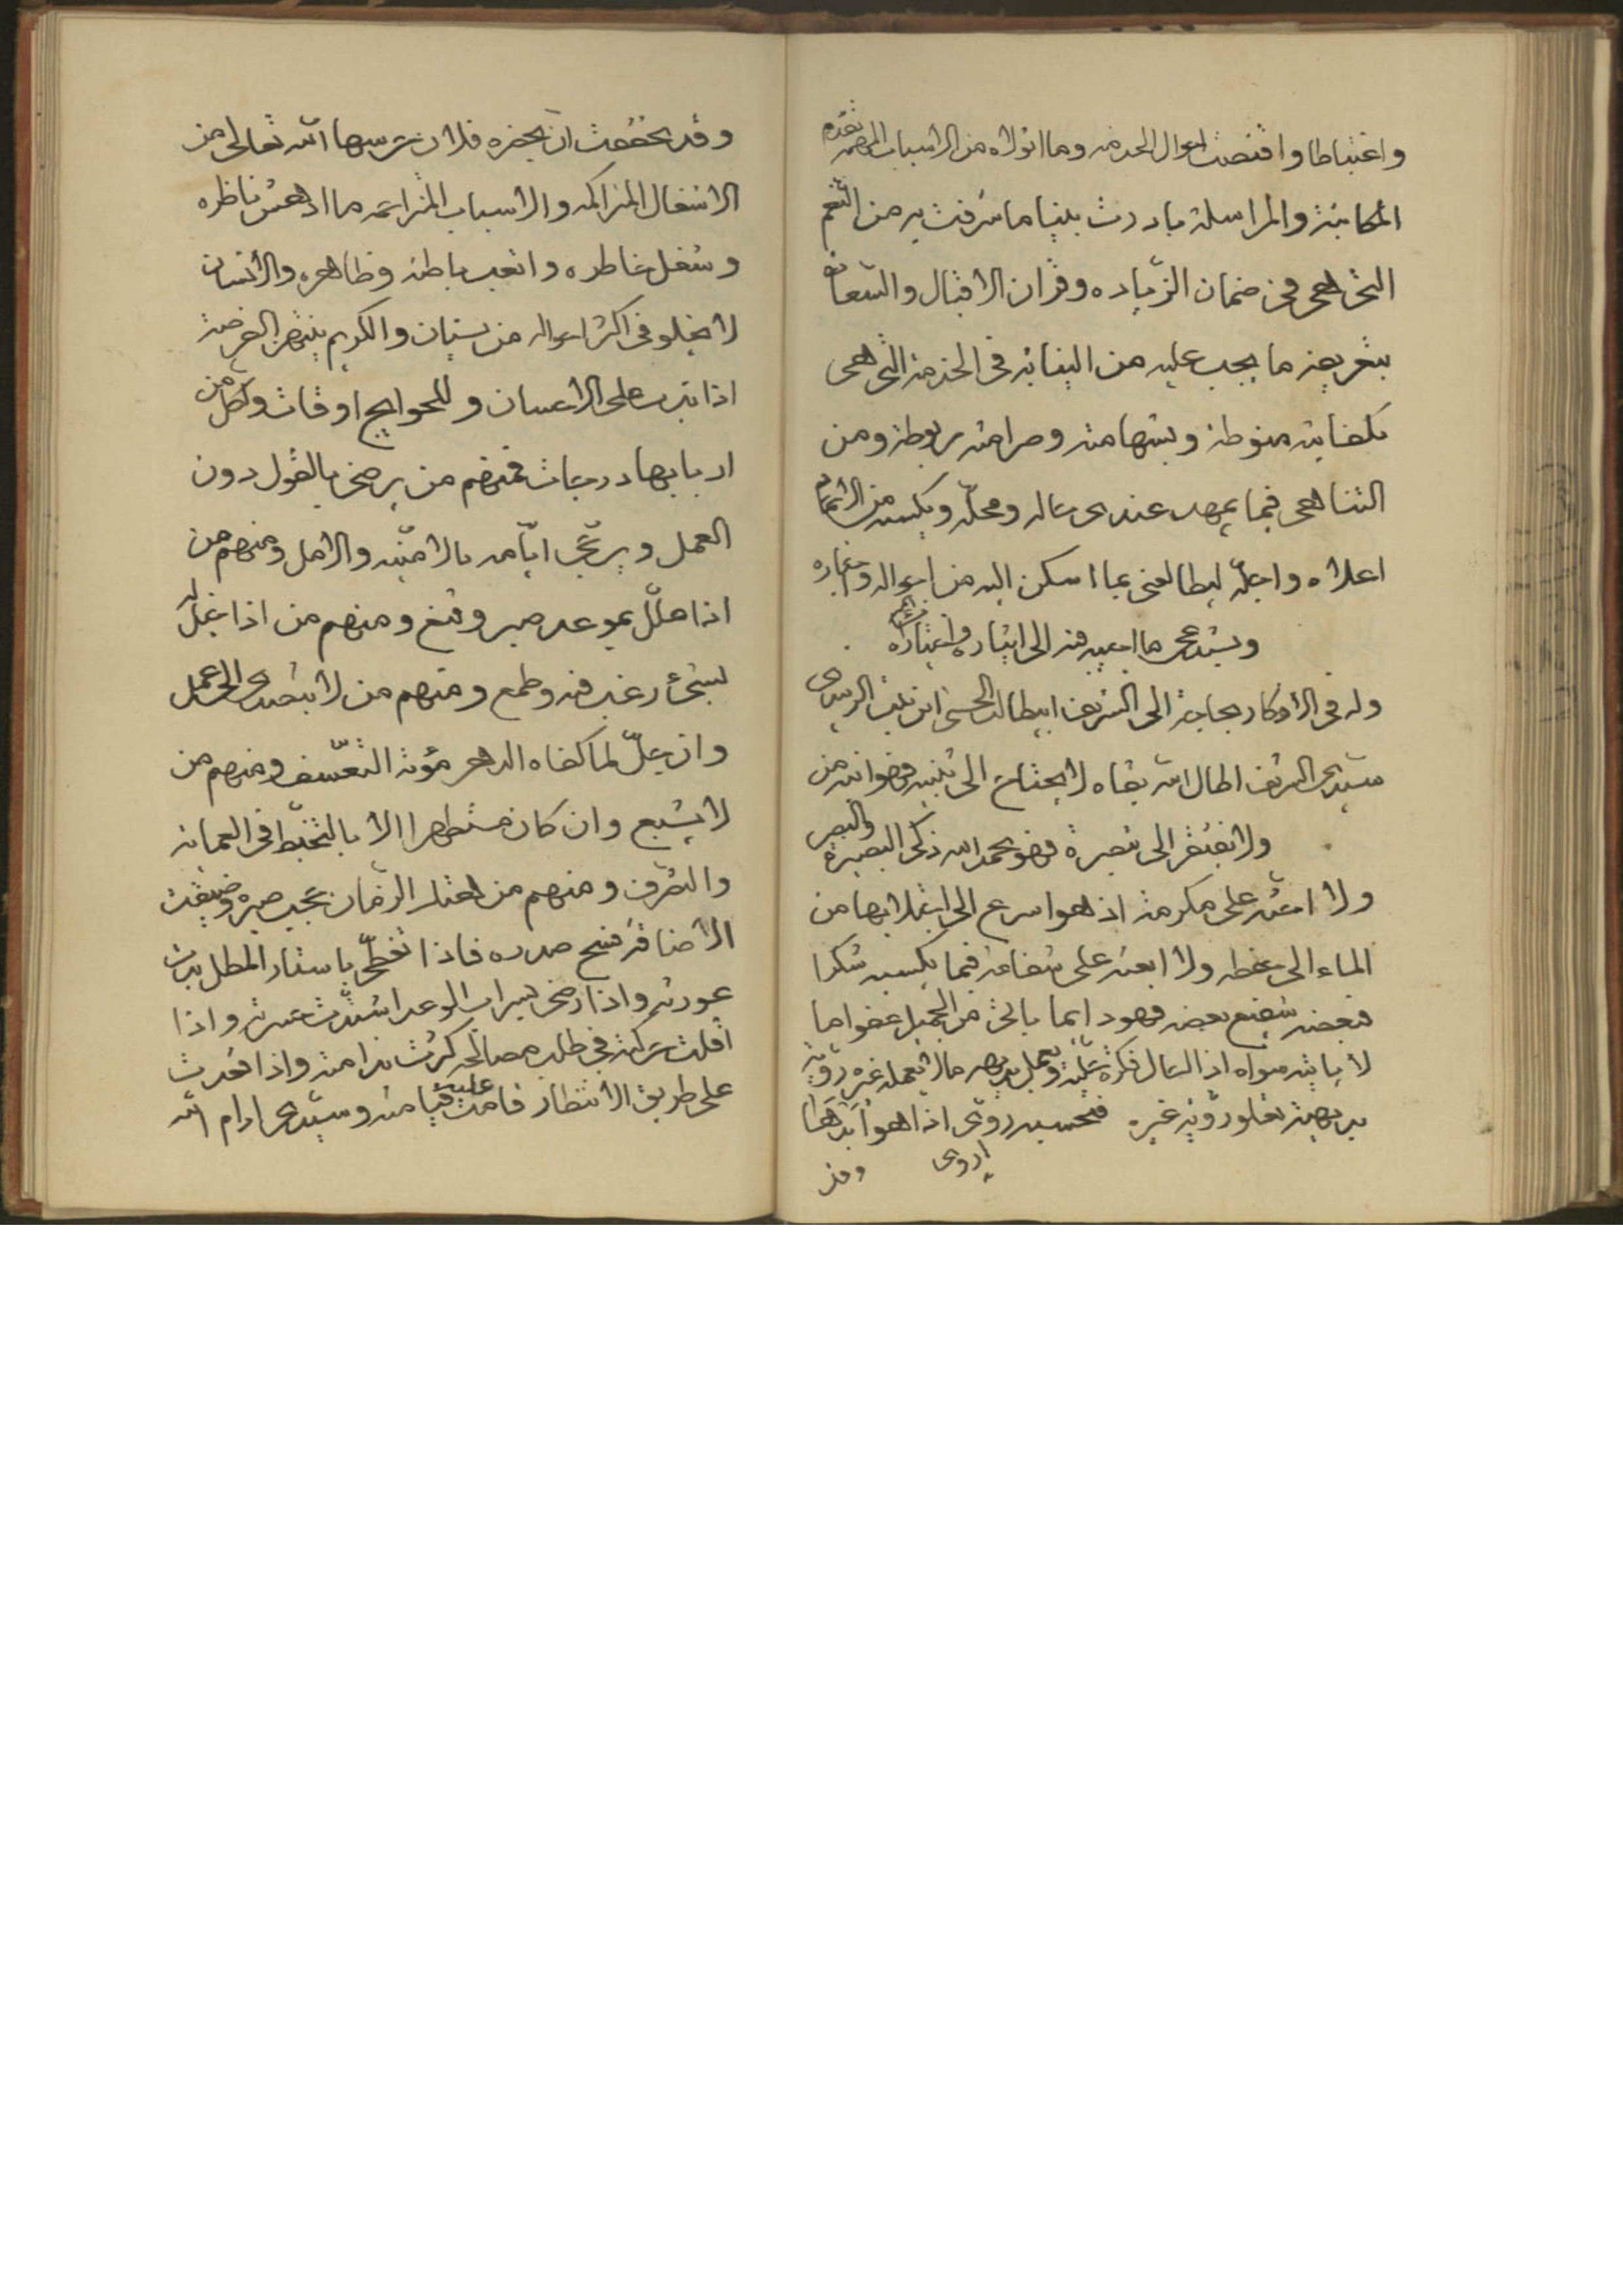 واغتباطا واقتضت احوال الخدمة وما اتولاه من الاسباب المهمة تقدم
المكاتبة والمراسلة بادرت بينا ما شرفت به من النعم
التي هي في ضمان الزيادة وقران الاقبال والسعادة
بتعريفه ما يجب عليه من النيابة في الخدمة التي هي
بكفايته منوطة وبشهامته وصرامته مربوطة ومن
الثنا هي فيما يمهد عندي حاله ومحله ويكسبه من الاتمام
اعلاه واجله ليطالعني بما اسكن اليه من احواله واخباره
ويستدعي ما اصرفه الى ايثاره واختياره
وله في الاذكار بحاجة الى الشريف ابيطالب الحسن ابن
سيدي الشريف اطال الله بقاه لا يحتاج الى تنبيه فهو انبه من
ولا يفتقر الى تبصرة فهو بحمد الله ذكي البصيرة والبصر
ولا احثه على مكرمة اذ هو اسرع الى ابتدارها من
الماء الى مغيضه ولا ابعثه على شفاعة فيما يكسبه شكرا
فبعضه شفيع بعضه فهو دايما ياتي من الجميل عفوا ما
لا ياتيه سواه اذا اطال فكرة عليه ويعمل بديهه ما لا يعمله غيره روية
بديهته تعلو روية غيره فتحسبه روى اذا هو ابدها
اروى
وقد
وقد تحققت ان بحضرة فلان حرسها الله تعالى من
الاشغال المتراكمة والاسباب المتزاحمة ما ادهش ناظره
وشغل خاطره واتعب باطنه وظاهره والانسان
لا يخلو في اكثر احواله من نسيان والكريم ينتهز الفرصة
اذا قدر على الاحسان وللحوايج اوقات ولكل من
اربابها درجات فمنهم من يرضى بالقول دون
العمل ويزجي ايامه بالامنية والامل ومنهم من
اذا علل بموعد صبر وقنع ومنهم من اذا خيل له
لشيء رغب فيه وطمع ومنهم من لا يتصدى الى عمل
وان جل لما كفاه الدهر مؤنة التعسف ومنهم من
لا يشبع وان كان مستظهرا الا بالتخبط في العمالة
والتصرف ومنهم من احتلر الزمان بجيب صبره وضيقت
الاضاقة فسح صدره فاذا تغطى باستار المطل بدت
عورته واذا ارخى سراب الوعد اشتدت حسرته واذا
اقلت حركته في طلب مصالحه كثرت ندامته واذا قعدت
على طريق الانتظار قامت عليه قيامته وسيدي ادام الله